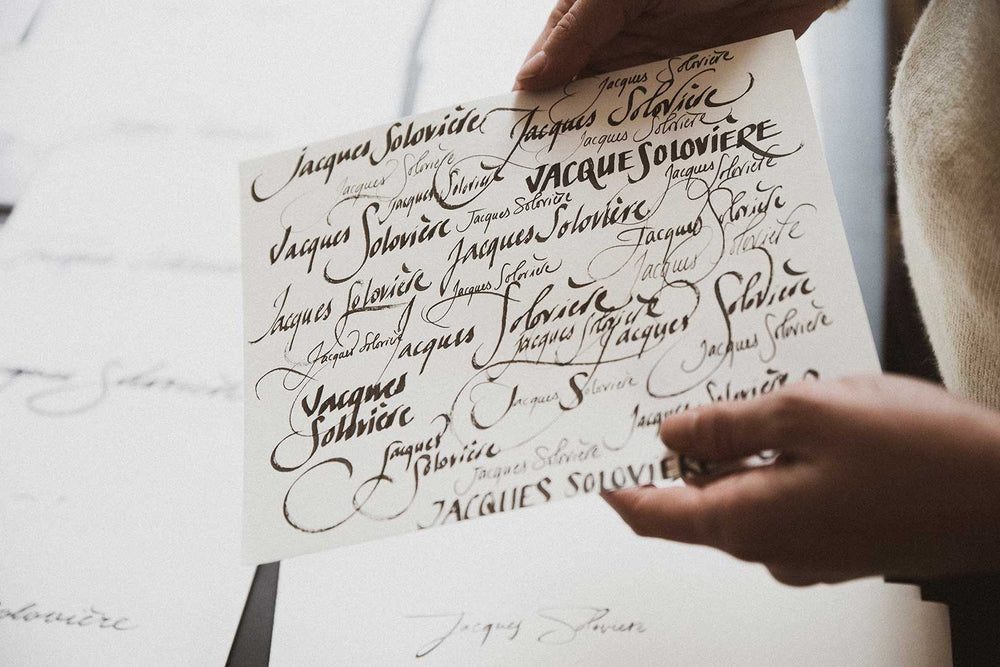 Jacques Solovière
Jacques Solovière
Jacques Solovière
Jacques Solovière
Jacques Solovière
Jacques Solovière
JACQUESOLOVIÈRE
Jacques Solovière
Jacques Solovière
Jacques Solovière
Jacques Solovière
Jacques Solovière
Jacques Solovière
Jacques Solovière
Jacques Solovière
Jacques Solovière
Jacques Solovière
Jacques Solovière
Jacques Solovière
Jacques Solovière
Jacques Solovière
Jacques Solovière
Jacques
Solovière
Jacques Solovière
Jacques Solovière
Jacques
Solovière
Jacques Solovière
JACQUES SOLOVIÈRE
Solovière
Jacques Solovière